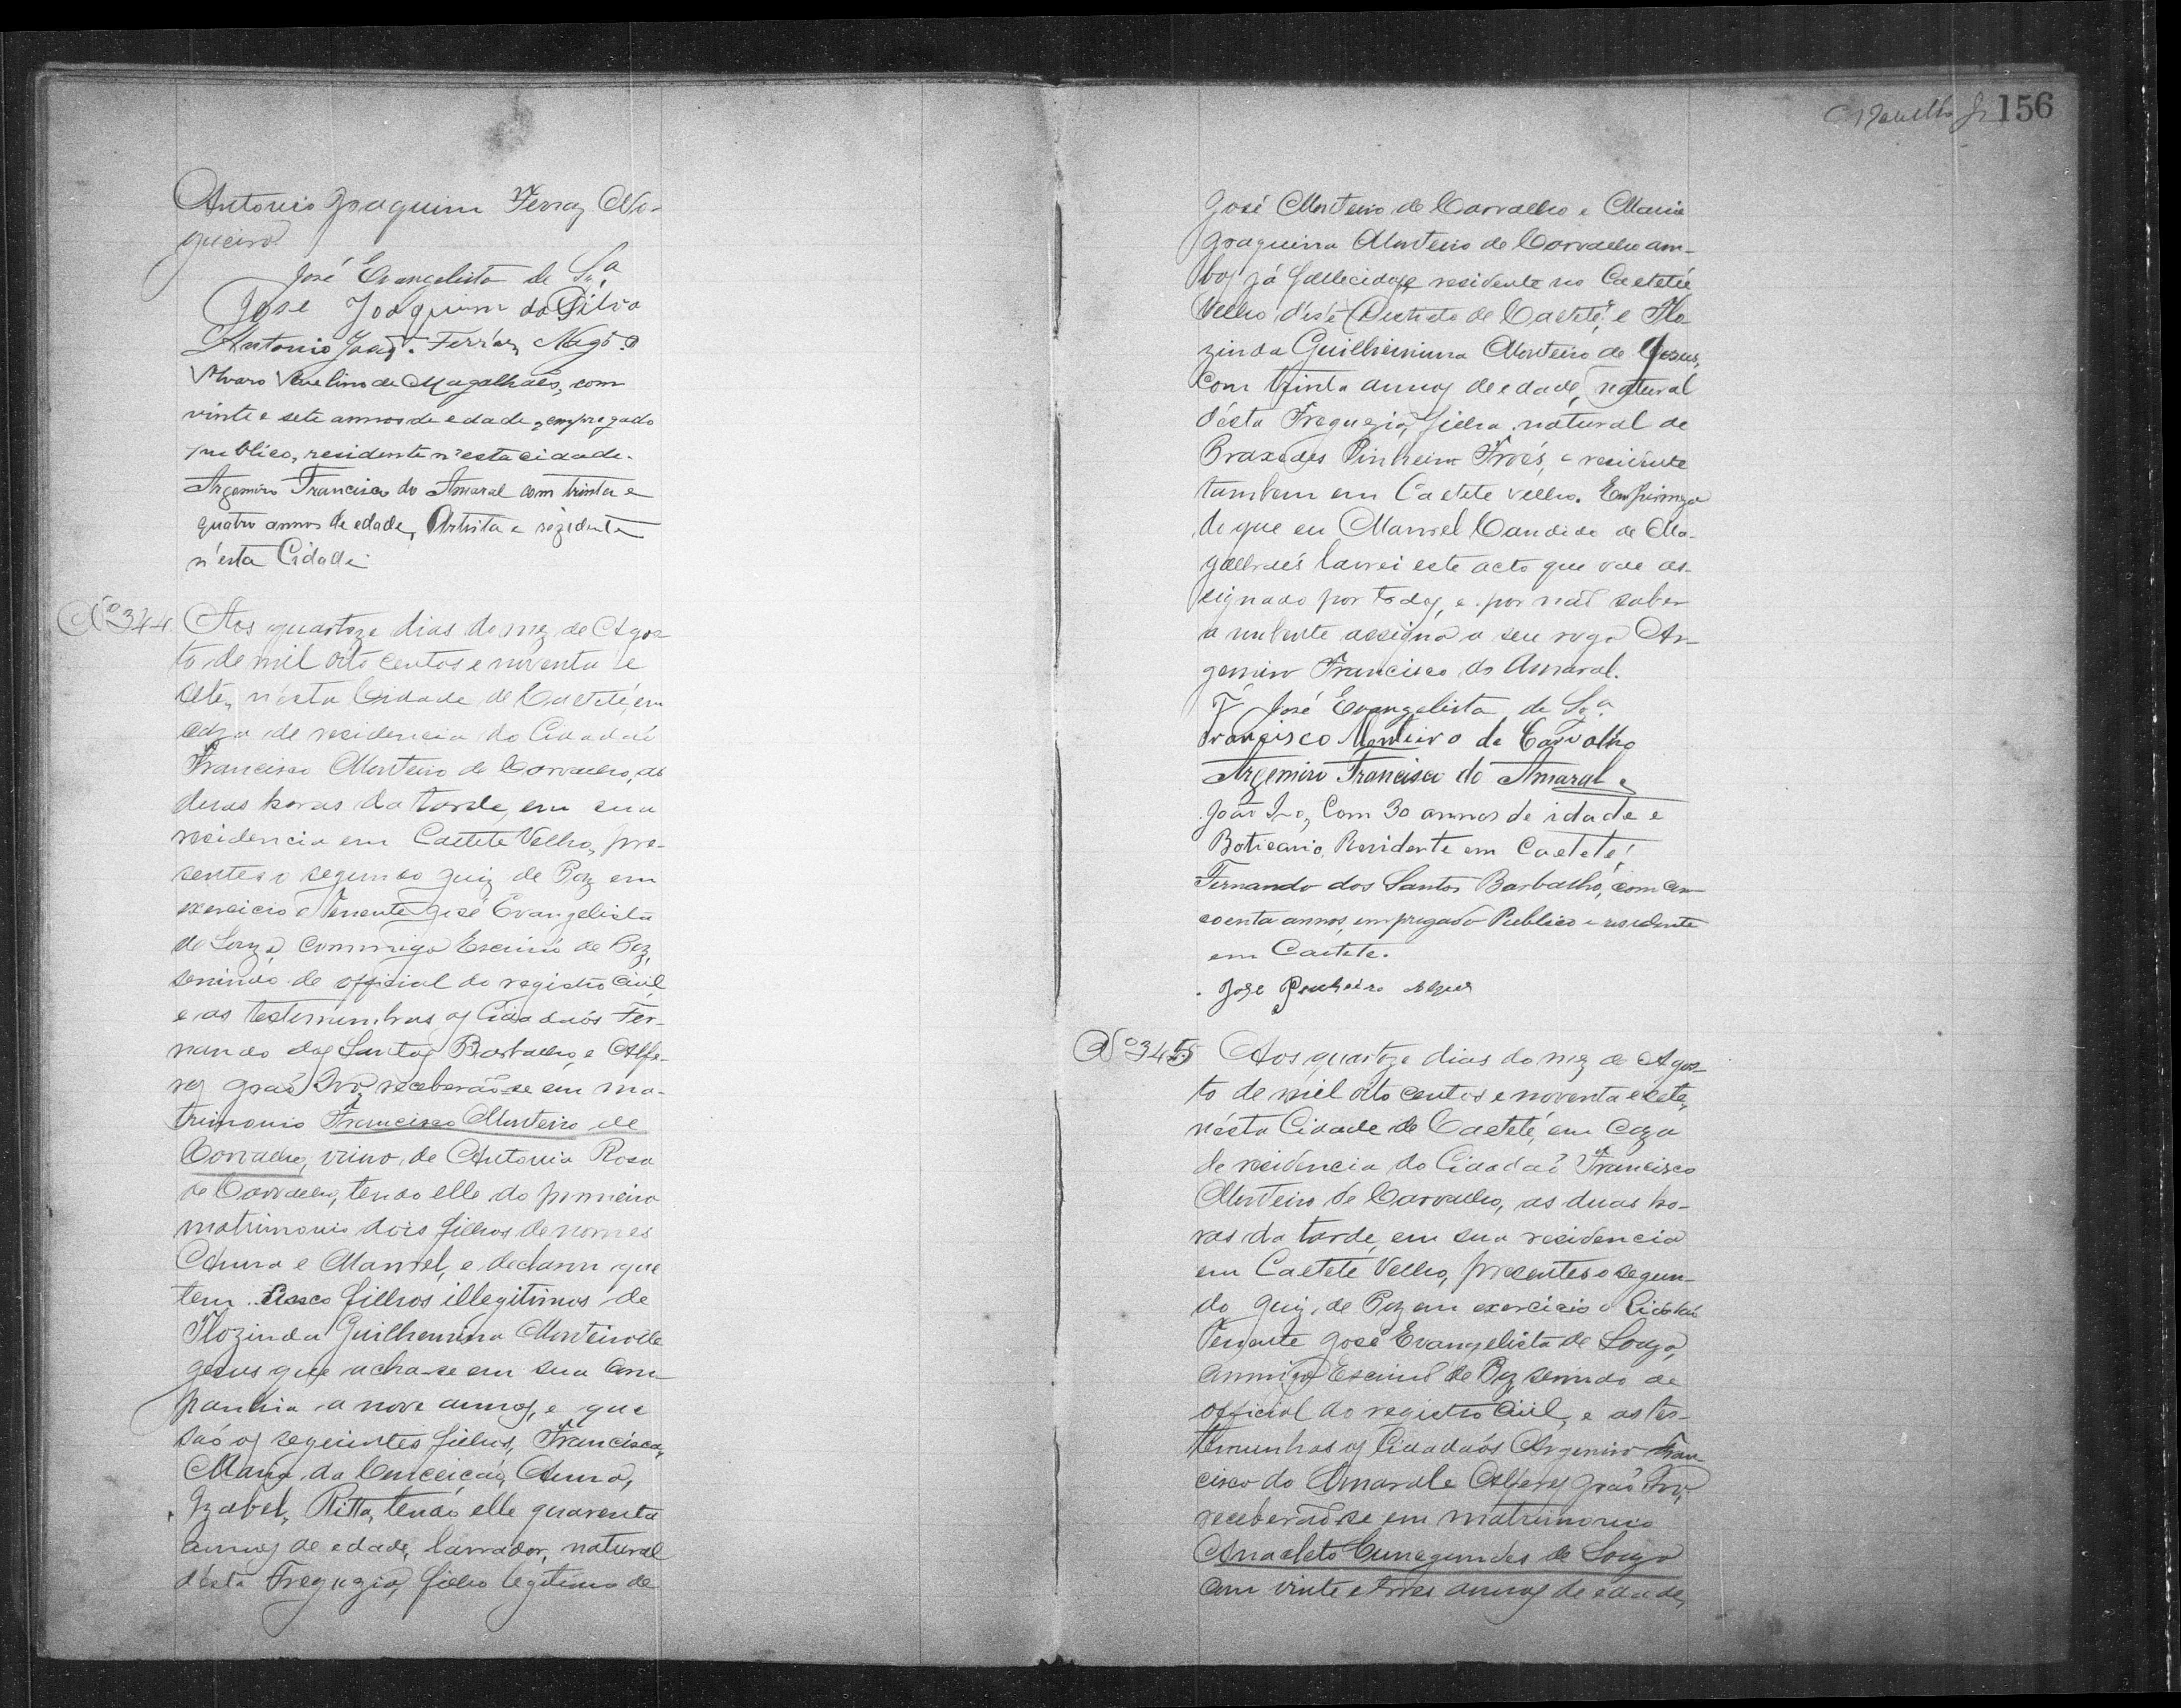 Antonio Joaquim Ferraz No-
gueira
José Evangelista de Sza
Jose Joaquim da Silva
Antonio Joaq. Ferráz Nogª
Alvaro Avelino de Magalhaẽs, com
vinte e sete annos de edade, empregado
publico, residente n'esta cidade.
Argemiro Francisco do Amaral com trinta e
quatro annos de edade, Artista e rezidente
n'esta Cidade
Nº 344. Aos quartoze dias do mez de Agos
to de mil oito centos e noventa e
sete, n'esta Cidade de Caeteté, em
caza de residencia do Cidadaõ
Francisco Monteiro de Carvalho, as
duas horas da tarde, em sua
residencia em Caeteté Velho, pre-
sentes o segundo Juiz de Paz em
exercicio o Tenente José Evangelista
de Souza, commigo Escrivaõ de Paz,
servindo de official do registro Civil,
e as testemunhas os Cidadaõs Fer-
nando dos Santos Barbalho, e Alfe-
res Joaõ Ivo, receberaõ-se em ma-
trimonio Francisco Monteiro de
Carvalho, viuvo de Antonia Rosa
de Carvalho, tendo elle do primeiro
matrimonio dois filhos de nomes
Anna e Manoel, e declarou que
tem cinco filhos illegitimos de
Flozinda Guilhermina Monteiro de
Jesus que acha-se em sua Com-
panhia a nove annos, e que
saõ os seguintes filhos, Francisca,
Maria da Conceiçaõ, Anna,
Izabel, Ritta, tendo elle quarenta
annos de edade, lavrador, natural
d'esta Freguezia, filho legitimo de
156
José Monteiro de Carvalho e Maria
Joaquina Monteiro de Carvalho am-
bos já fallecidos, e residente no Caeteté
Velho d'este Districto de Caeteté, e Flo
zinda Guilhermina Monteiro de Jesus,
com trinta annos de edade, natural
d'esta Freguezia, filha natural de
Praxedes Pinheiro Froés, e residente
tambem em Caeteté velho. Em firmeza
de que eu Manoel Candido de Ma-
galhaẽs lavrei este acto que vae as-
signado por todos, e por naõ saber
a nubente assigna a seu rogo Ar-
gemiro Francisco do Amaral.
José Evangelista de Sza
Francisco Monteiro de Carvalho
Argemiro Francisco do Amaral
Joaõ Ivo, Com 30 annos de idade e
Boticario, Residente em Caeteté,
Fernando dos Santos Barbalho, com cin
coenta annos, empregado Publico e residente
em Caeteté.
Jose Pinheiro
Nº 345 Aos quartoze dias do mez de Agos-
to de mil oito centos e noventa e sete,
n'esta Cidade de Caeteté, em Caza
de residencia do Cidadaõ Francisco
Monteiro de Carvalho, as duas ho-
ras da tarde, em sua residencia
em Caeteté Velho, presentes o segun-
do Juiz de Paz em exercicio o Cidadaõ
Tenente José Evangelista de Souza,
commigo Escrivaõ de Paz servindo de
official do registro Civil, e as tes-
temunhas os Cidadaõs Argemiro Fran
cisco do Amaral e Alferes Joaõ Ivo,
receberaõ-se em matrimonio
Anacleto Cunegundes de Souza
com vinte e tres annos de edade,